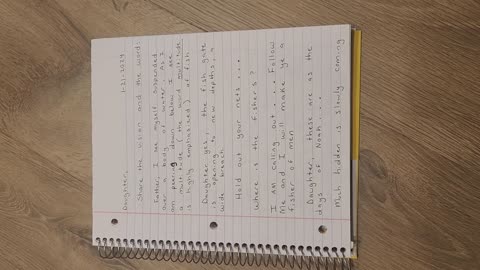 1-21-2024
Daughter,
Share the vision and the word:
Father, I see myself suspended
over a body of water. As I
am peering down below I see
a multitude (the word multitude
is highly emphasized) of fish.
Daughter yes, the fish gate
is opening to new depths, a
wide breath.
Hold out your nets...
Where is the fishers?
I am calling out.... Follow
Me and I will make ye a
fisher of men
Daughter, these are as the
days of Noah...
Much hidden is slowly coming